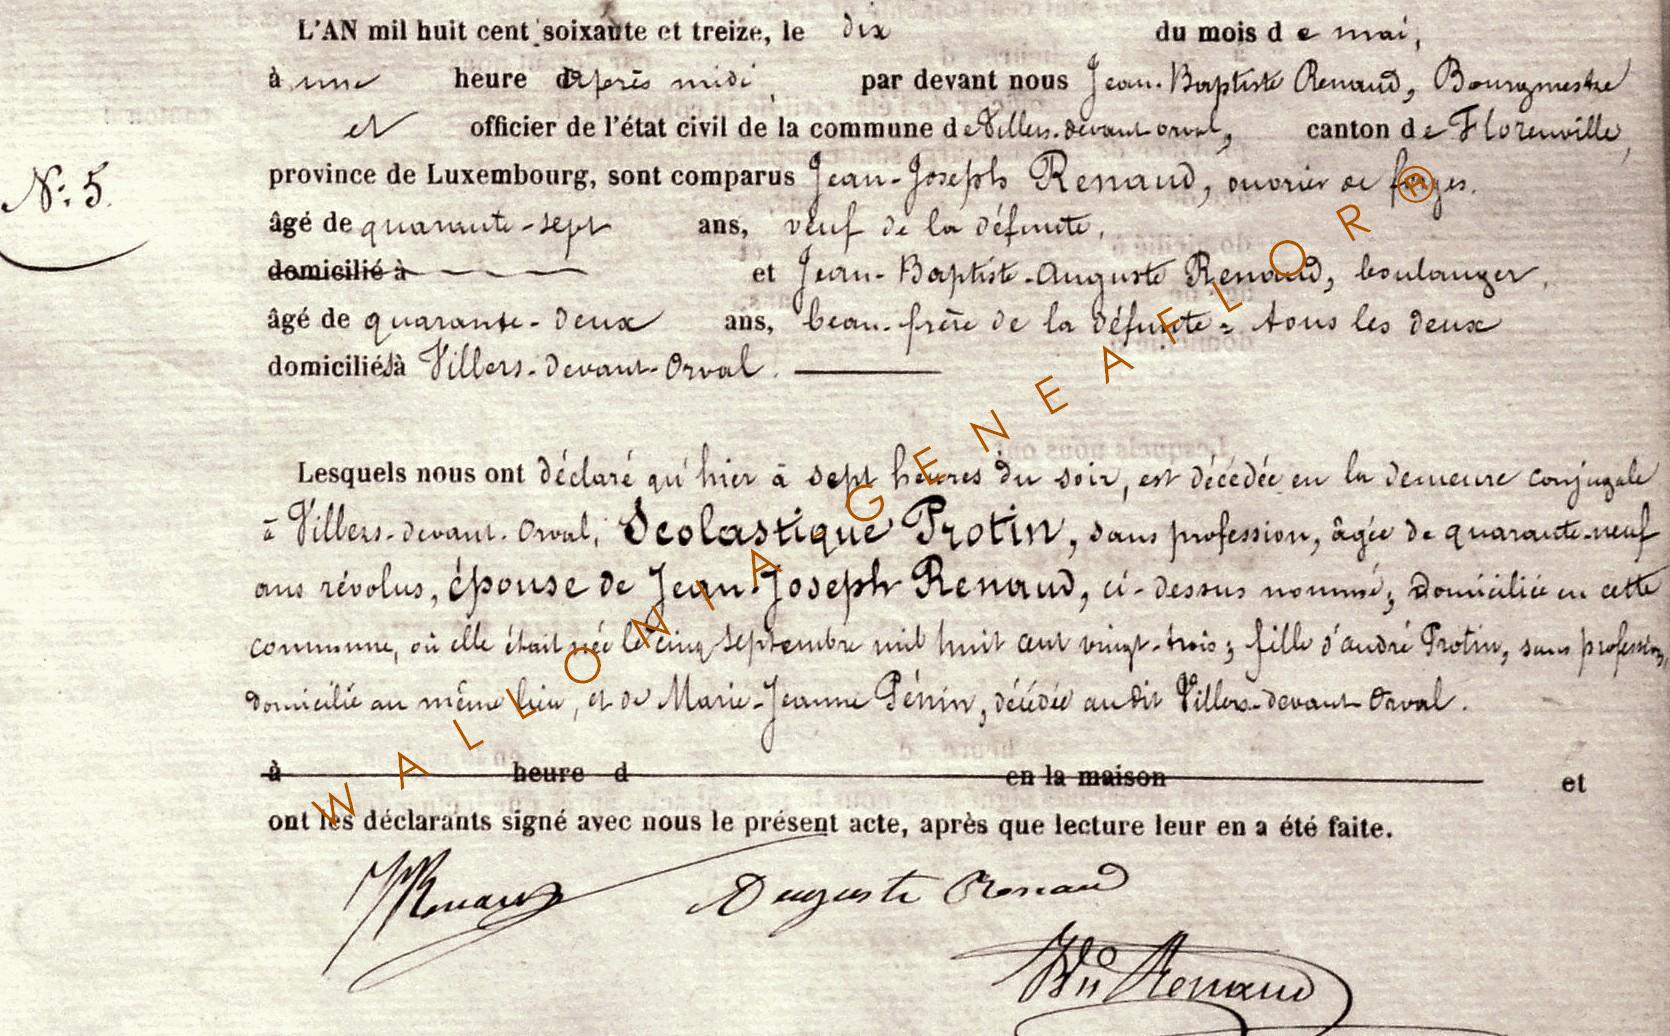 L'AN mil huit cent soixante et treize, le dix du mois de mai,
à une heure d'après midi, par devant nous Jean-Baptiste Renaud, Bourgmestre
et officier de l'état civil de la commune de Villers-devant-orval, canton de Florenville,
N: 5.
province de Luxembourg, sont comparus Jean-Joseph Renaud, ouvrier de forges.
âgé de quarante-sept ans, veuf de la défunte,
domicilié à et Jean-Baptiste-Auguste Renaud, boulanger,
âgé de quarante-deux ans, beau-frère de la défunte = tous les deux
domiciliés à Villers-devant-Orval.
Lesquels nous ont déclaré qu'hier à sept heures du soir, est décédée en la demeure conjugale
à Villers-devant-Orval, Scolastique Protin, sans profession, âgée de quarante-neuf
ans révolus, épouse de Jean-Joseph Renaud, ci-dessus nommé, domiciliée en cette
commune, où elle était née le cinq septembre mil huit cent vingt-trois; fille d'andré Protin, sans profession,
domicilié au même lieu, et de Marie-Jeanne Pénin, décédée audit Villers-devant-Orval.
à heure d en la maison et
ont les déclarants signé avec nous le présent acte, après que lecture leur en a été faite.
JJRenaud Auguste Renaud
JBte Renaud
WALLONIA-GENEAFLOR®